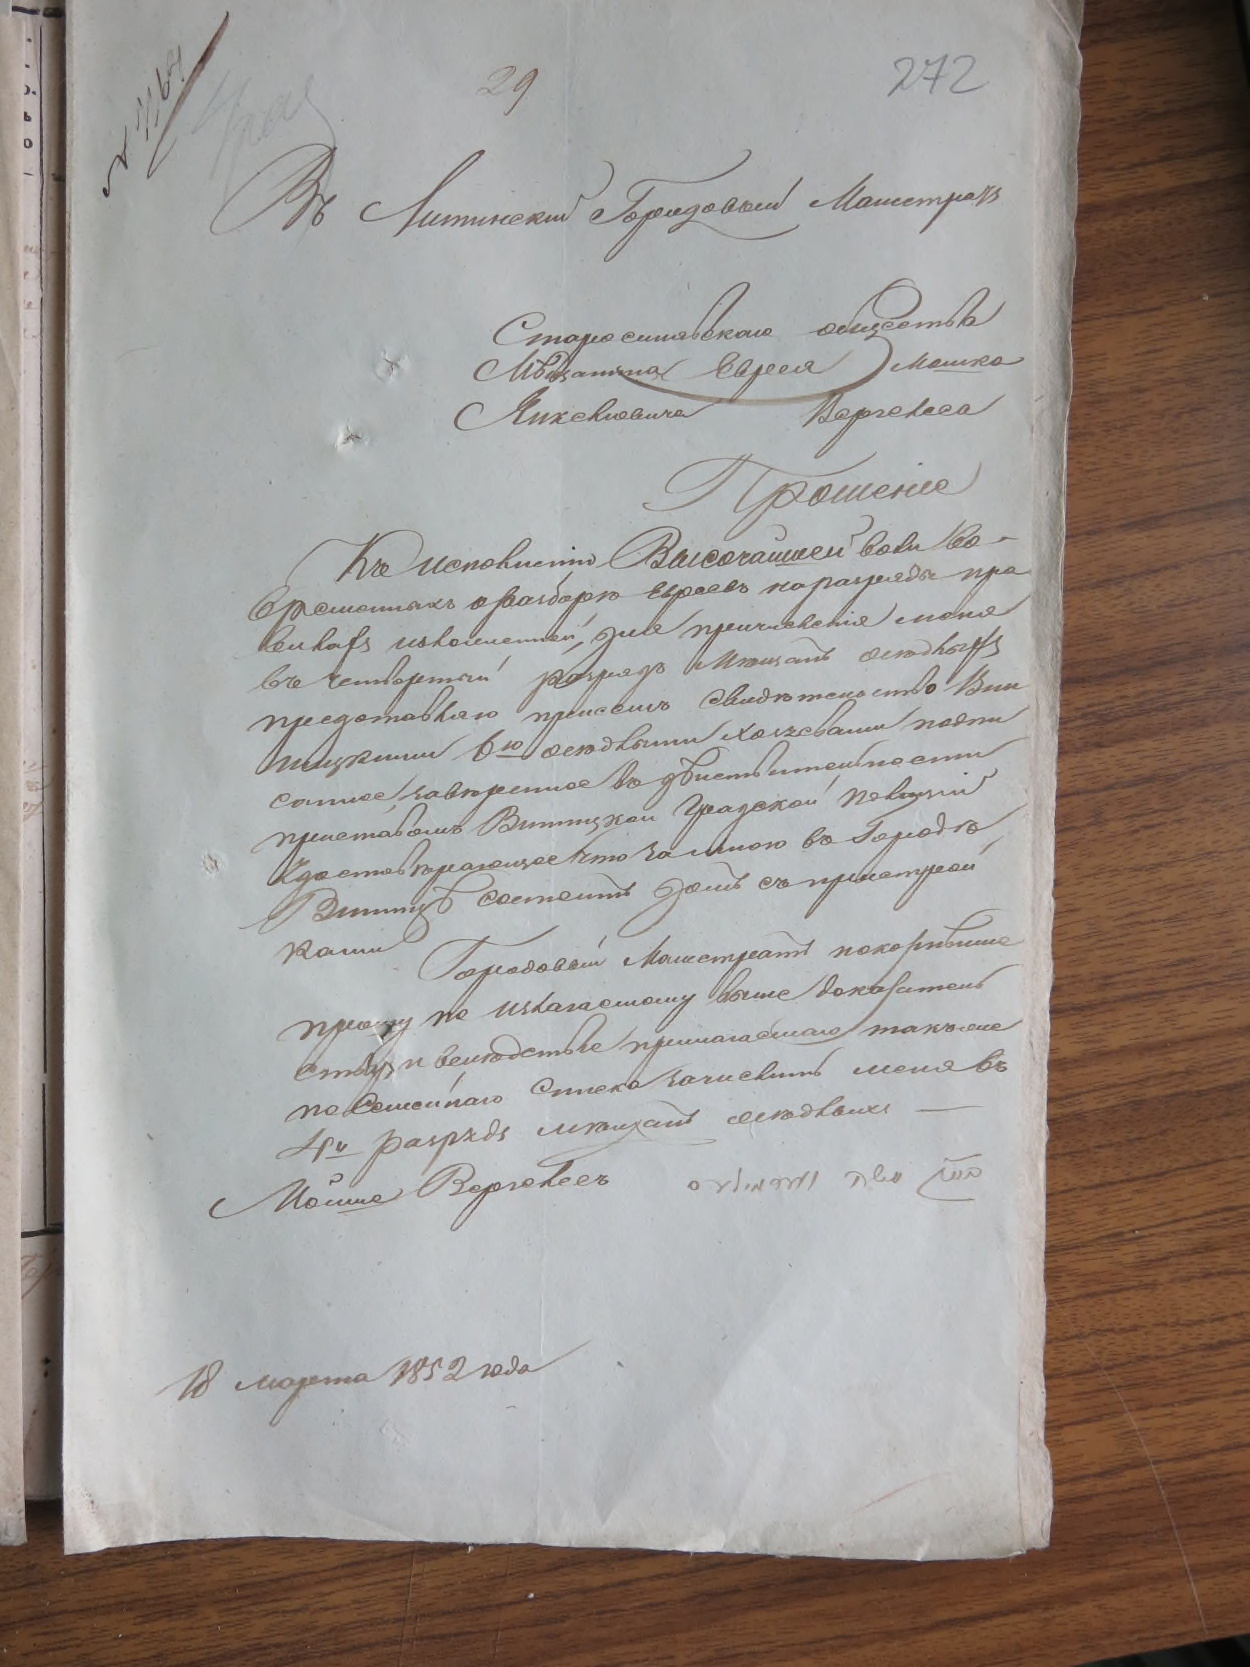 29
272
Въ Литинский Городовый Магистратъ
Старосинявского общества
Мѣщанина Еврея Мошка
Янкелиовича
Прошение
Къ исполнению Высочайшей воли во
временныхъ о разборе Евреевъ на разряды пра
вилахъ изъясненной, для причисления меня
въ четвертый разрядъ мещанъ оседлыхъ
предоставляю присемъ свидетельство Вин
ницкими 6ю оседлыми хозяевами подпи
санное, заверенное въ дѣйствительности
приставомъ Винницкой Градской Полиции
Удостоверяющее что за мною въ Городе
Винницѣ состоитъ домъ съ пристрой
ками
Городовый Магистратъ покорнѣйше
прошу по излагаемому выше доказатель
ству и вследствие прилагаемаго такъже
посемейнаго списка зачислить меня въ
4й разрядъ мещанъ оседлыхъ —
Мойше
משה
18 марта 1852 года